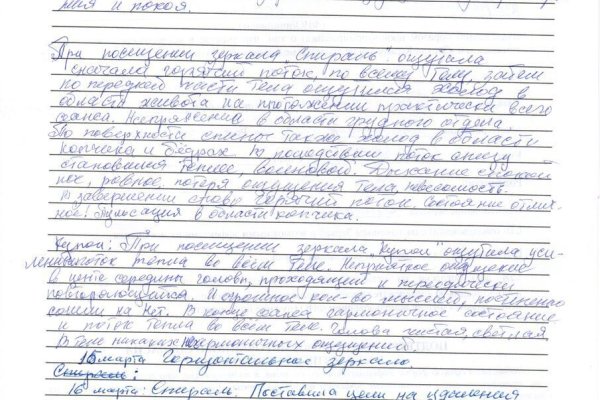 ния и покоя.
При посещении зеркала "Спираль" ощутила
сначала горячий поток, по всему телу, затем
по передней части тела ощущался холод в
области живота на протяжении практически всего
сеанса. Напряжение в области грудного отдела.
По поверхности спины также холод в области
копчика и бедрах. В последствии поток снизу
становился теплее, волновой. Дыхание спокой
ное, ровное, потеря ощущения тела, невесомость.
В завершении снова горячий поток. Состояние отлич-
ное. Пульсация в области копчика.
Купол: При посещении зеркала "Купол" ощутила уси-
ление поток тепла во всем теле. Неприятное ощущение
в центе середины головы, проходящий и периодически
повторяющийся. И огромное кол-во мыслей, постепенно
сошли на нет. В конце сеанса гармоничное состояние
и поток тепла во всем теле. Голова чистая, светлая,
в теле никаких негармоничных ощущений.
15 марта Горизонтальное зеркало.
Спираль:
16 марта: Спираль. Поставила цели на удаления